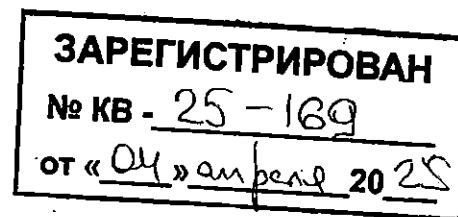 ЗАРЕГИСТРИРОВАН
№ КВ - 25-169
от «04» апреля 2025